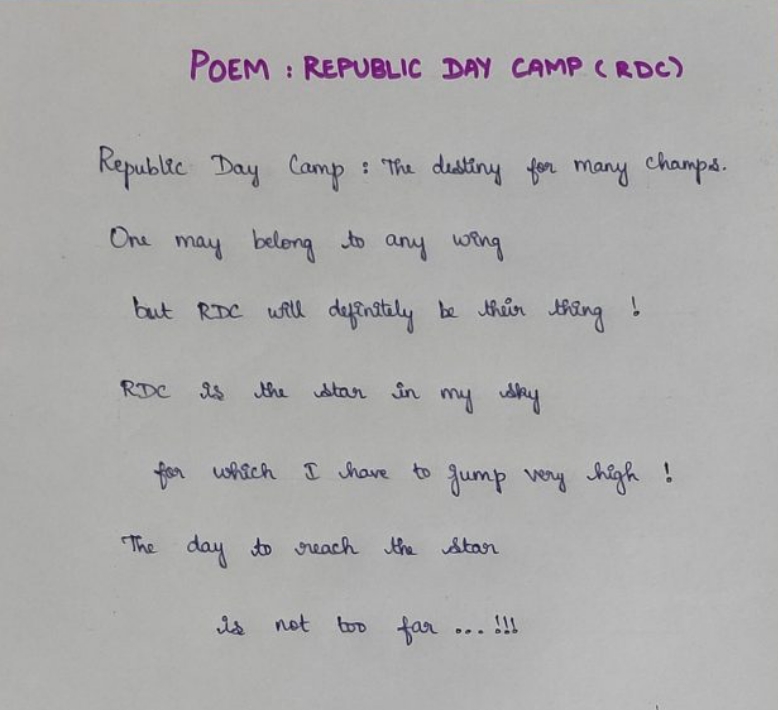 POEM : REPUBLIC DAY CAMP (RDC)
Republic Day Camp : The destiny for many champs.
One may belong to any wing
but RDC will definitely be their thing !
RDC is the star in my sky
for which I have to jump very high !
The day to reach the star
is not too far ... !!!